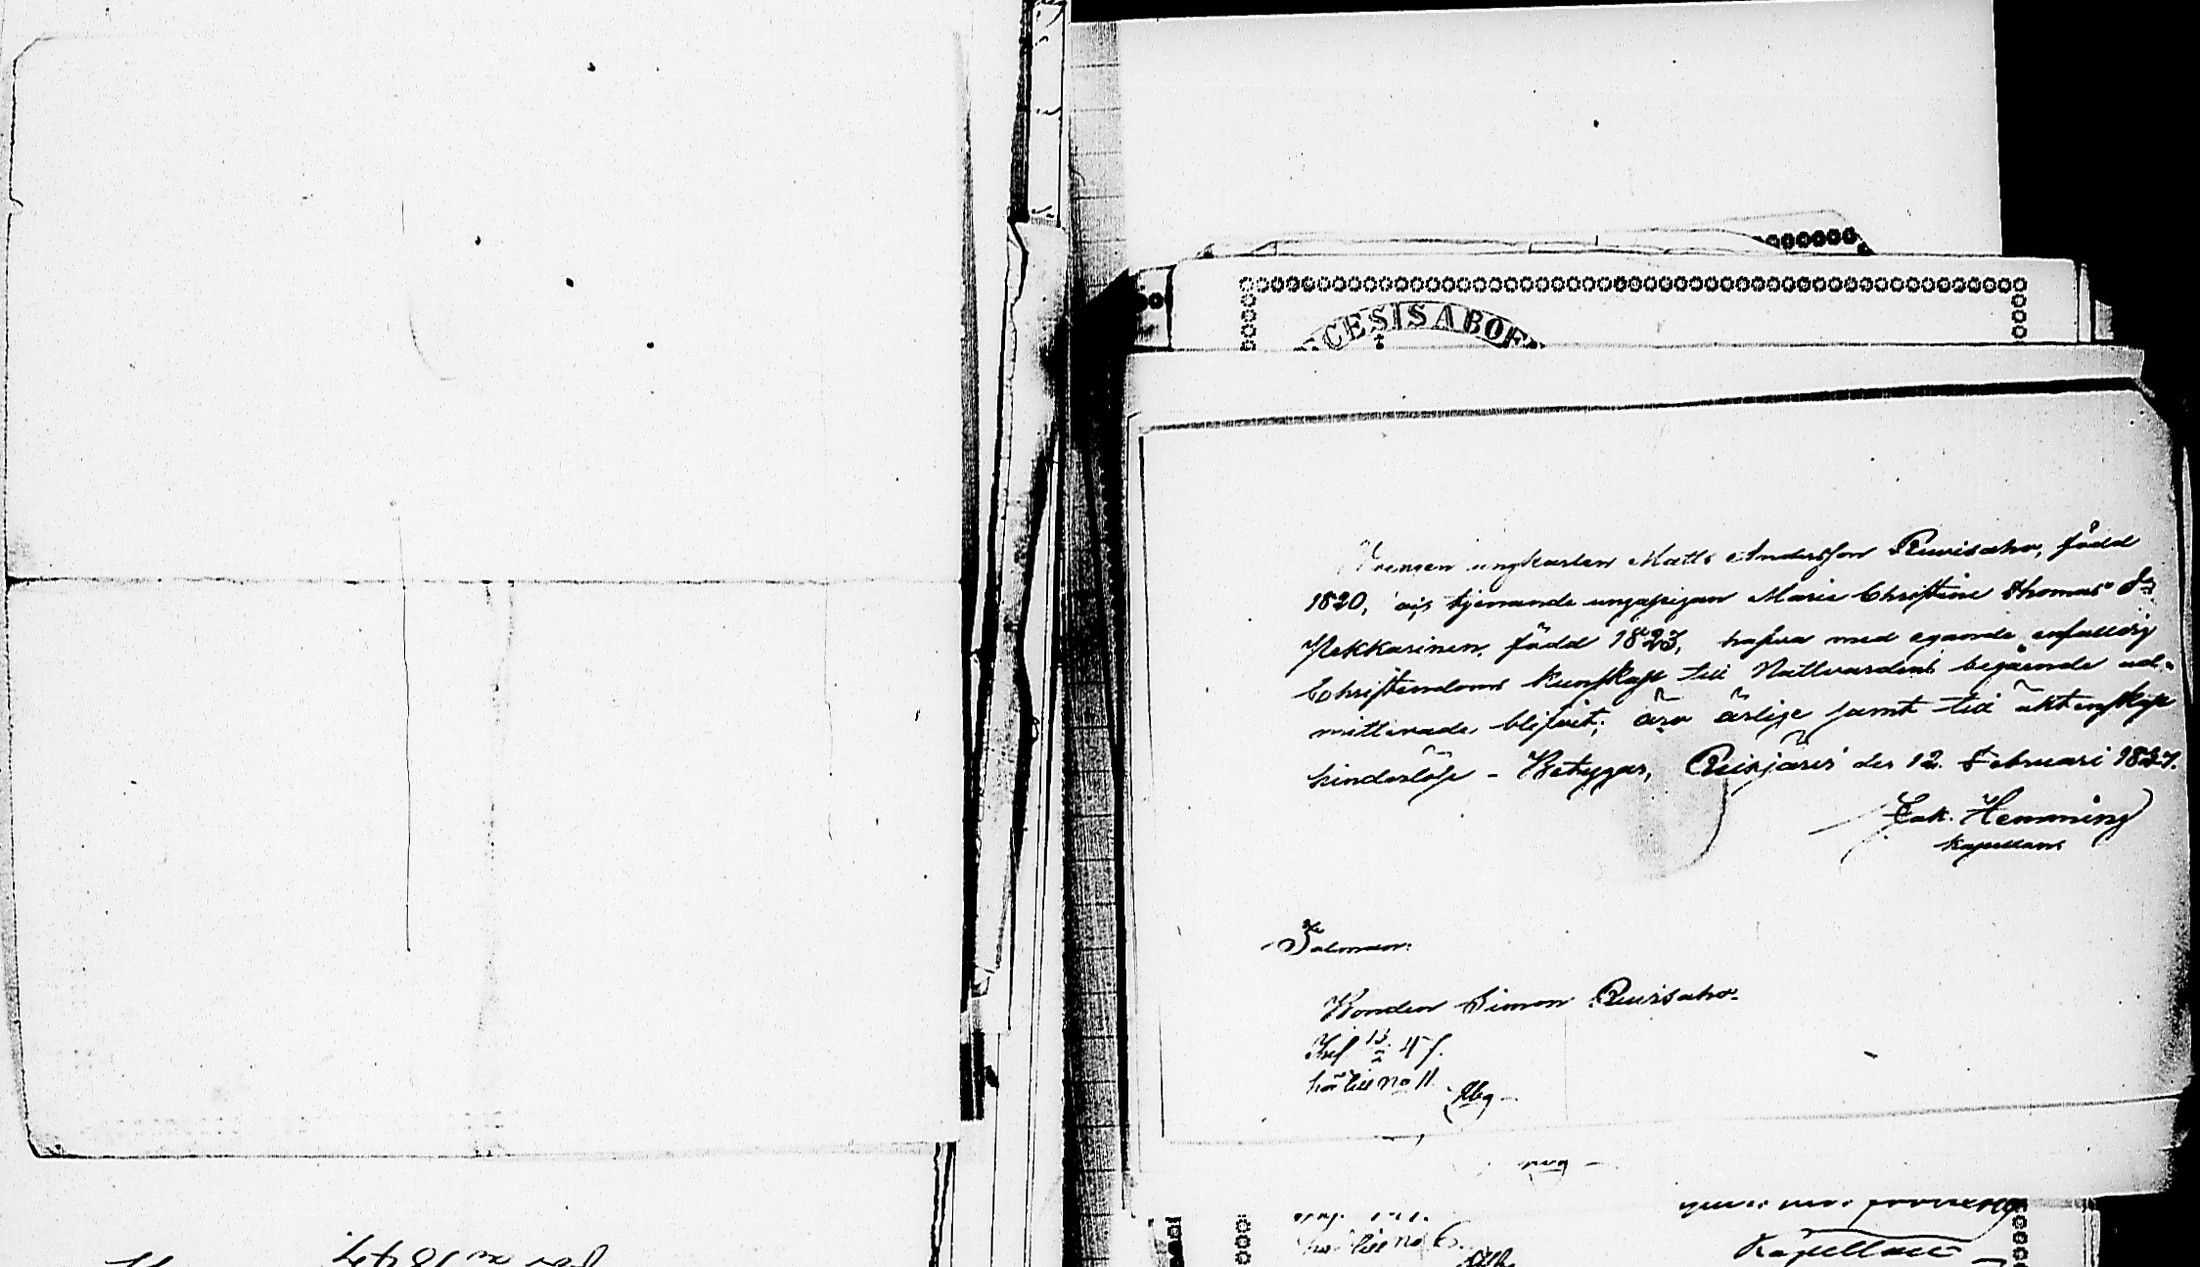 CESIS ABOE
Drengen ungkarlen Matts Andersson Ruuisaho, född
1820, och tjenande ungapigan Maria Christina Thomas Dr
Pekkarinen, född 1823, hafva med egande enfaldig
Christendoms kunskap till Nattvardens begående ad-
mitterade blifvit; äro ärlige samt till äktenskap
hinderlöse - Betygar, Reisjärvi den 12. Februari 1847.
Jak. Hemming
Kapellan
Bonden Simon Ruuisaho
12/2 47.
hör till no 11.
hör till no 6
Kapellan
1847